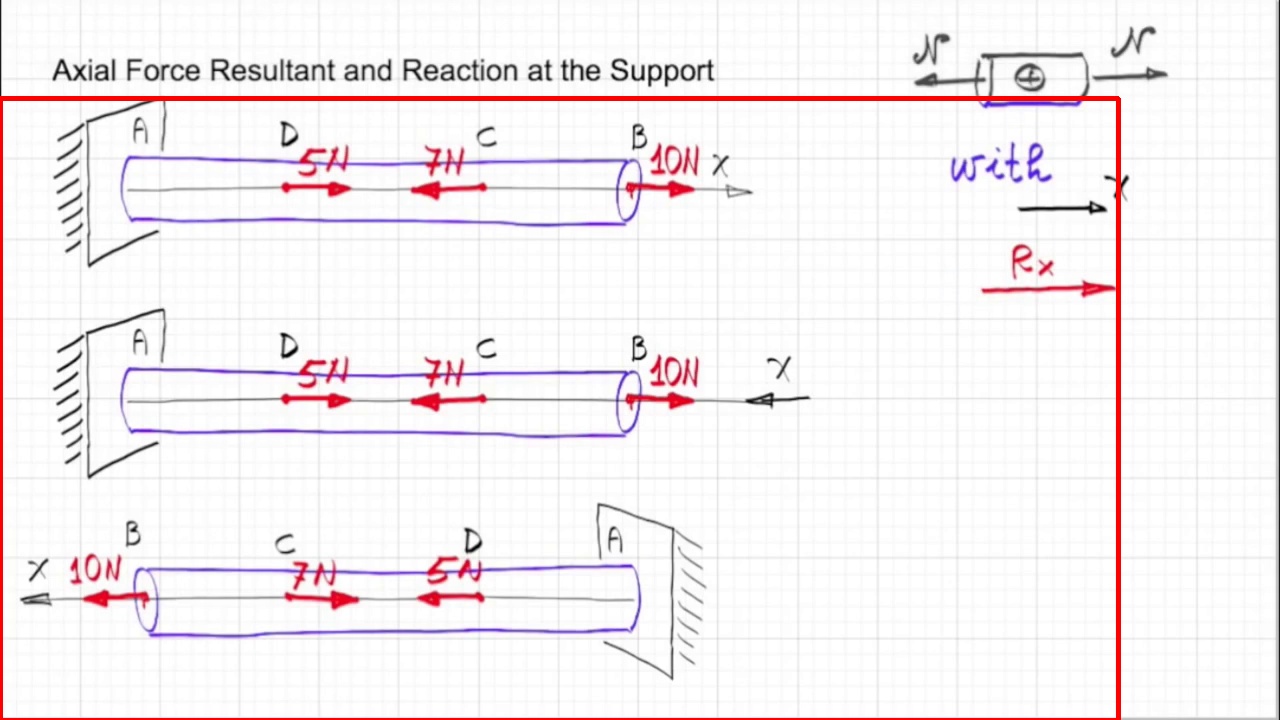 Axial Force Resultant and Reaction at the Support
N + N
A D 5N 7N C B 10N X
with X
Rx
A D 5N 7N C B 10N X
X 10N B C 7N 5N D A